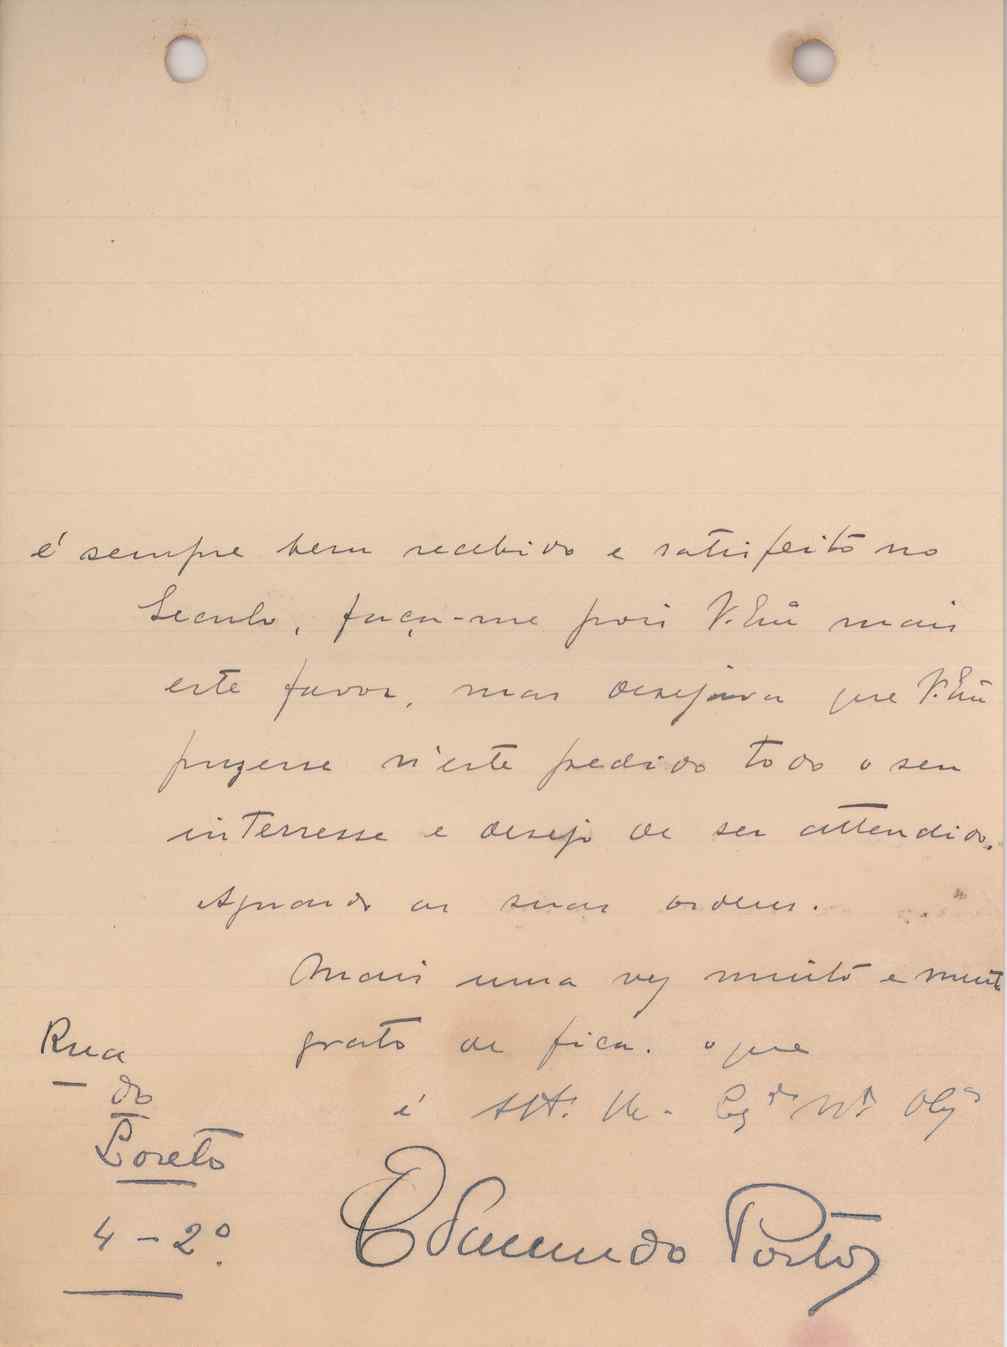 é sempre bem recebido e satisfeito no
Seculo, faça-me pois V. Exª mais
este favor, mas desejava que V. Exª
puzesse n'este pedido todo o seu
interresse e desejo de ser attendido.
Aguardo as suas ordens.
Mais uma vez muito e muito
grato de fica. o que
é Attº Ve. Cr.do Mtº Obgº
Rua
do
Loreto
4 - 2º
Edmundo Porto